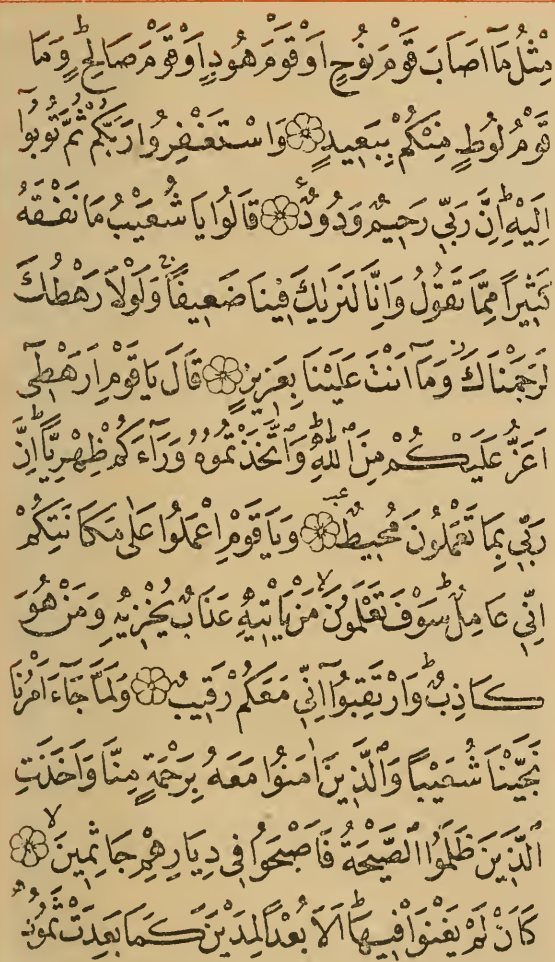 مِثْلُ مَٓا اَصَابَ قَوْمَ نُوحٍ اَوْ قَوْمَ هُودٍ اَوْ قَوْمَ صَالِحٍۜ وَمَا
قَوْمُ لُوطٍ مِنْكُمْ بِبَعِيدٍ ۞ وَاسْتَغْفِرُوا رَبَّكُمْ ثُمَّ تُوبُٓوا
اِلَيْهِۜ اِنَّ رَبِّي رَحِيمٌ وَدُودٌ ۞ قَالُوا يَا شُعَيْبُ مَا نَفْقَهُ
كَثِيراً مِمَّا تَقُولُ وَاِنَّا لَنَرٰيكَ فِينَا ضَعِيفاًۚ وَلَوْلَا رَهْطُكَ
لَرَجَمْنَاكَۘ وَمَٓا اَنْتَ عَلَيْنَا بِعَزِيزٍ ۞ قَالَ يَا قَوْمِ اَرَهْطِٓي
اَعَزُّ عَلَيْكُمْ مِنَ اللّٰهِۜ وَاتَّخَذْتُمُوهُ وَرَٓاءَكُمْ ظِهْرِياًّۜ اِنَّ
رَبِّي بِمَا تَعْمَلُونَ مُحِيطٌ ۞ وَيَا قَوْمِ اعْمَلُوا عَلٰى مَكَانَتِكُمْ
اِنِّي عَامِلٌۜ سَوْفَ تَعْلَمُونَۙ مَنْ يَأْتِيهِ عَذَابٌ يُخْزِيهِ وَمَنْ هُوَ
كَاذِبٌۜ وَارْتَقِبُٓوا اِنِّي مَعَكُمْ رَقِيبٌ ۞ وَلَمَّا جَٓاءَ اَمْرُنَا
نَجَّيْنَا شُعَيْباً وَالَّذِينَ اٰمَنُوا مَعَهُ بِرَحْمَةٍ مِنَّا وَاَخَذَتِ
الَّذِينَ ظَلَمُوا الصَّيْحَةُ فَاَصْبَحُوا فِي دِيَارِهِمْ جَاثِمِينَۙ ۞
كَاَنْ لَمْ يَغْنَوْا فِيهَاۜ اَلَا بُعْداً لِمَدْيَنَ كَمَا بَعِدَتْ ثَمُودُ